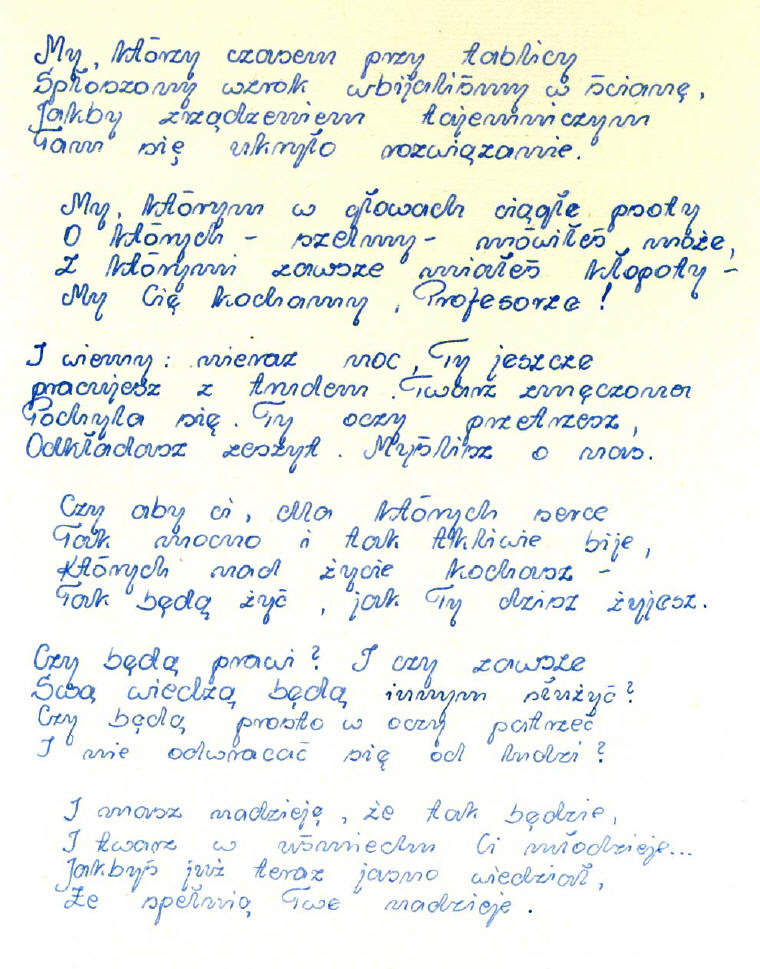 My, którzy czasem przy tablicy
Spłoszony wzrok wbijaliśmy w ścianę,
Jakby zrządzeniem tajemniczym
Tam się ukryło rozwiązanie.
My, którym w głowach ciągle psoty
O których - szelmy - mówiłeś może,
Z którymi zawsze miałeś kłopoty -
My Cię kochamy, Profesorze!
I wiemy: nieraz noc, Ty jeszcze
pracujesz z trudem. Twarz zmęczona
Pochyla się. Ty oczy przetrzesz,
Odkładasz zeszyt. Myślisz o nas.
Czy aby ci, dla których serce
Tak mocno i tak tkliwie bije,
Których nad życie kochasz -
Tak będą żyć, jak Ty dziśz żyjesz.
Czy będą prawi? I czy zawsze
Swą wiedzą będą innym służyć?
Czy będą prosto w oczy patrzeć
I nie odwracać się od ludzi?
I masz nadzieję, że tak będzie,
I twarz w uśmiechu Ci młodzieje...
Jakbyś już teraz jasno wiedział,
Że spełnią Twe nadzieje.